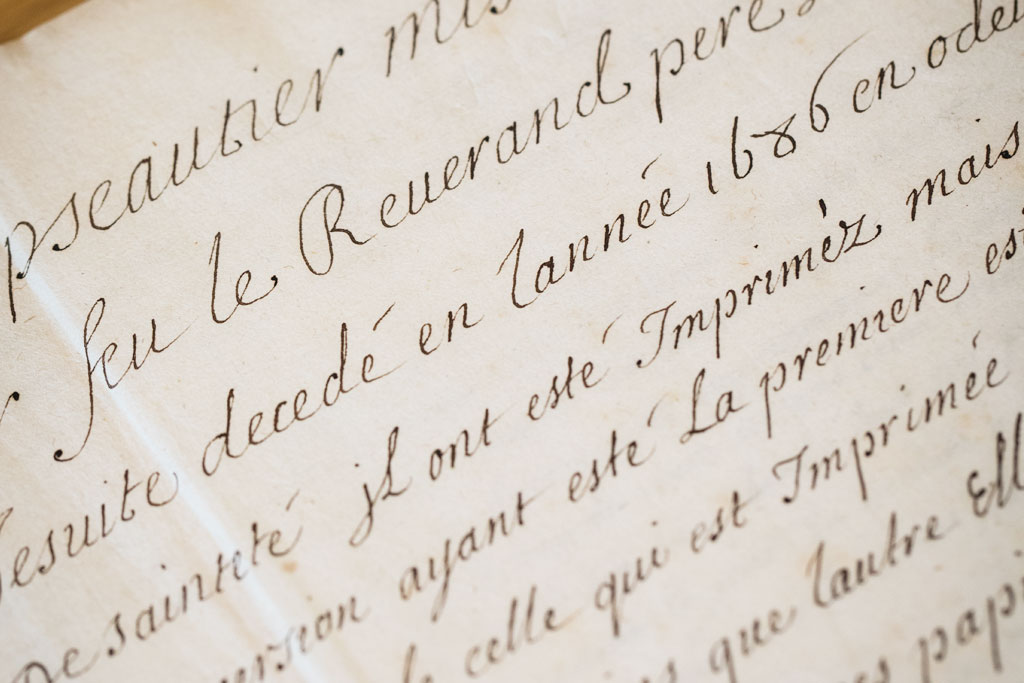 pseautier mis
feu le Reuerand pere
Jesuite decedé en lannée 1686 en odeu
De sainteté jl ont esté Imprimèz mais
version ayant esté La premiere est
celle qui est Imprimée
que lautre Ell
papi